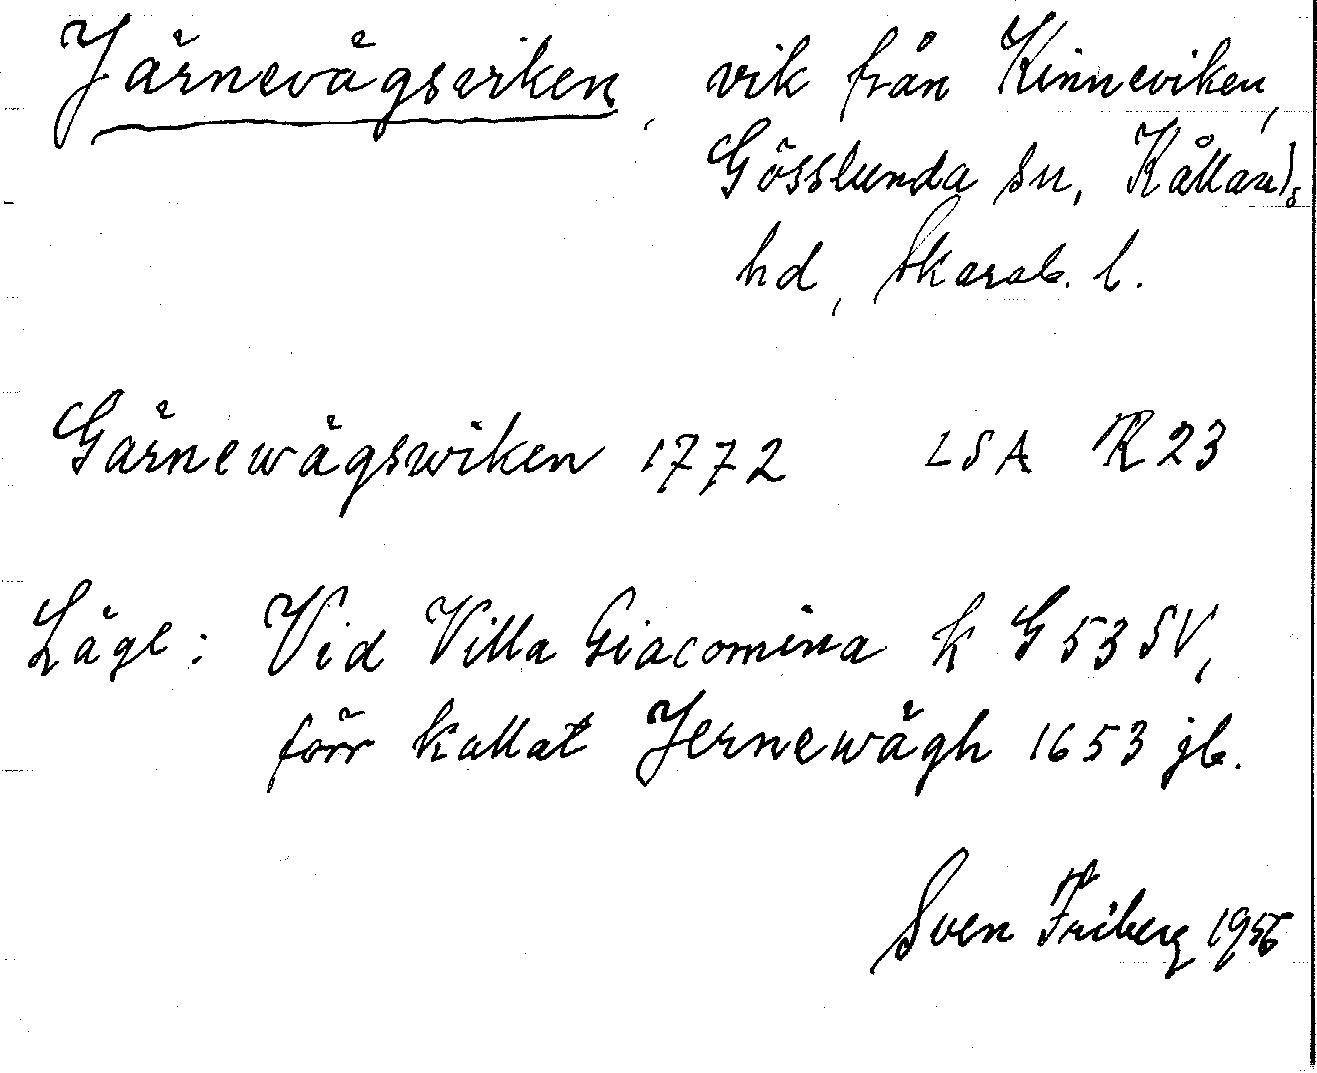 Järnevägsviken, vik från Kinneviken,
Gösslunda sn, Kållands
hd, Skarab. l.
Gärnewägswiken 1772 LSA R 23
Läge: Vid Villa Giacomina k G 53 SV,
förr kallat Jernewägh 1653 jb.
Sven Friberg 1956